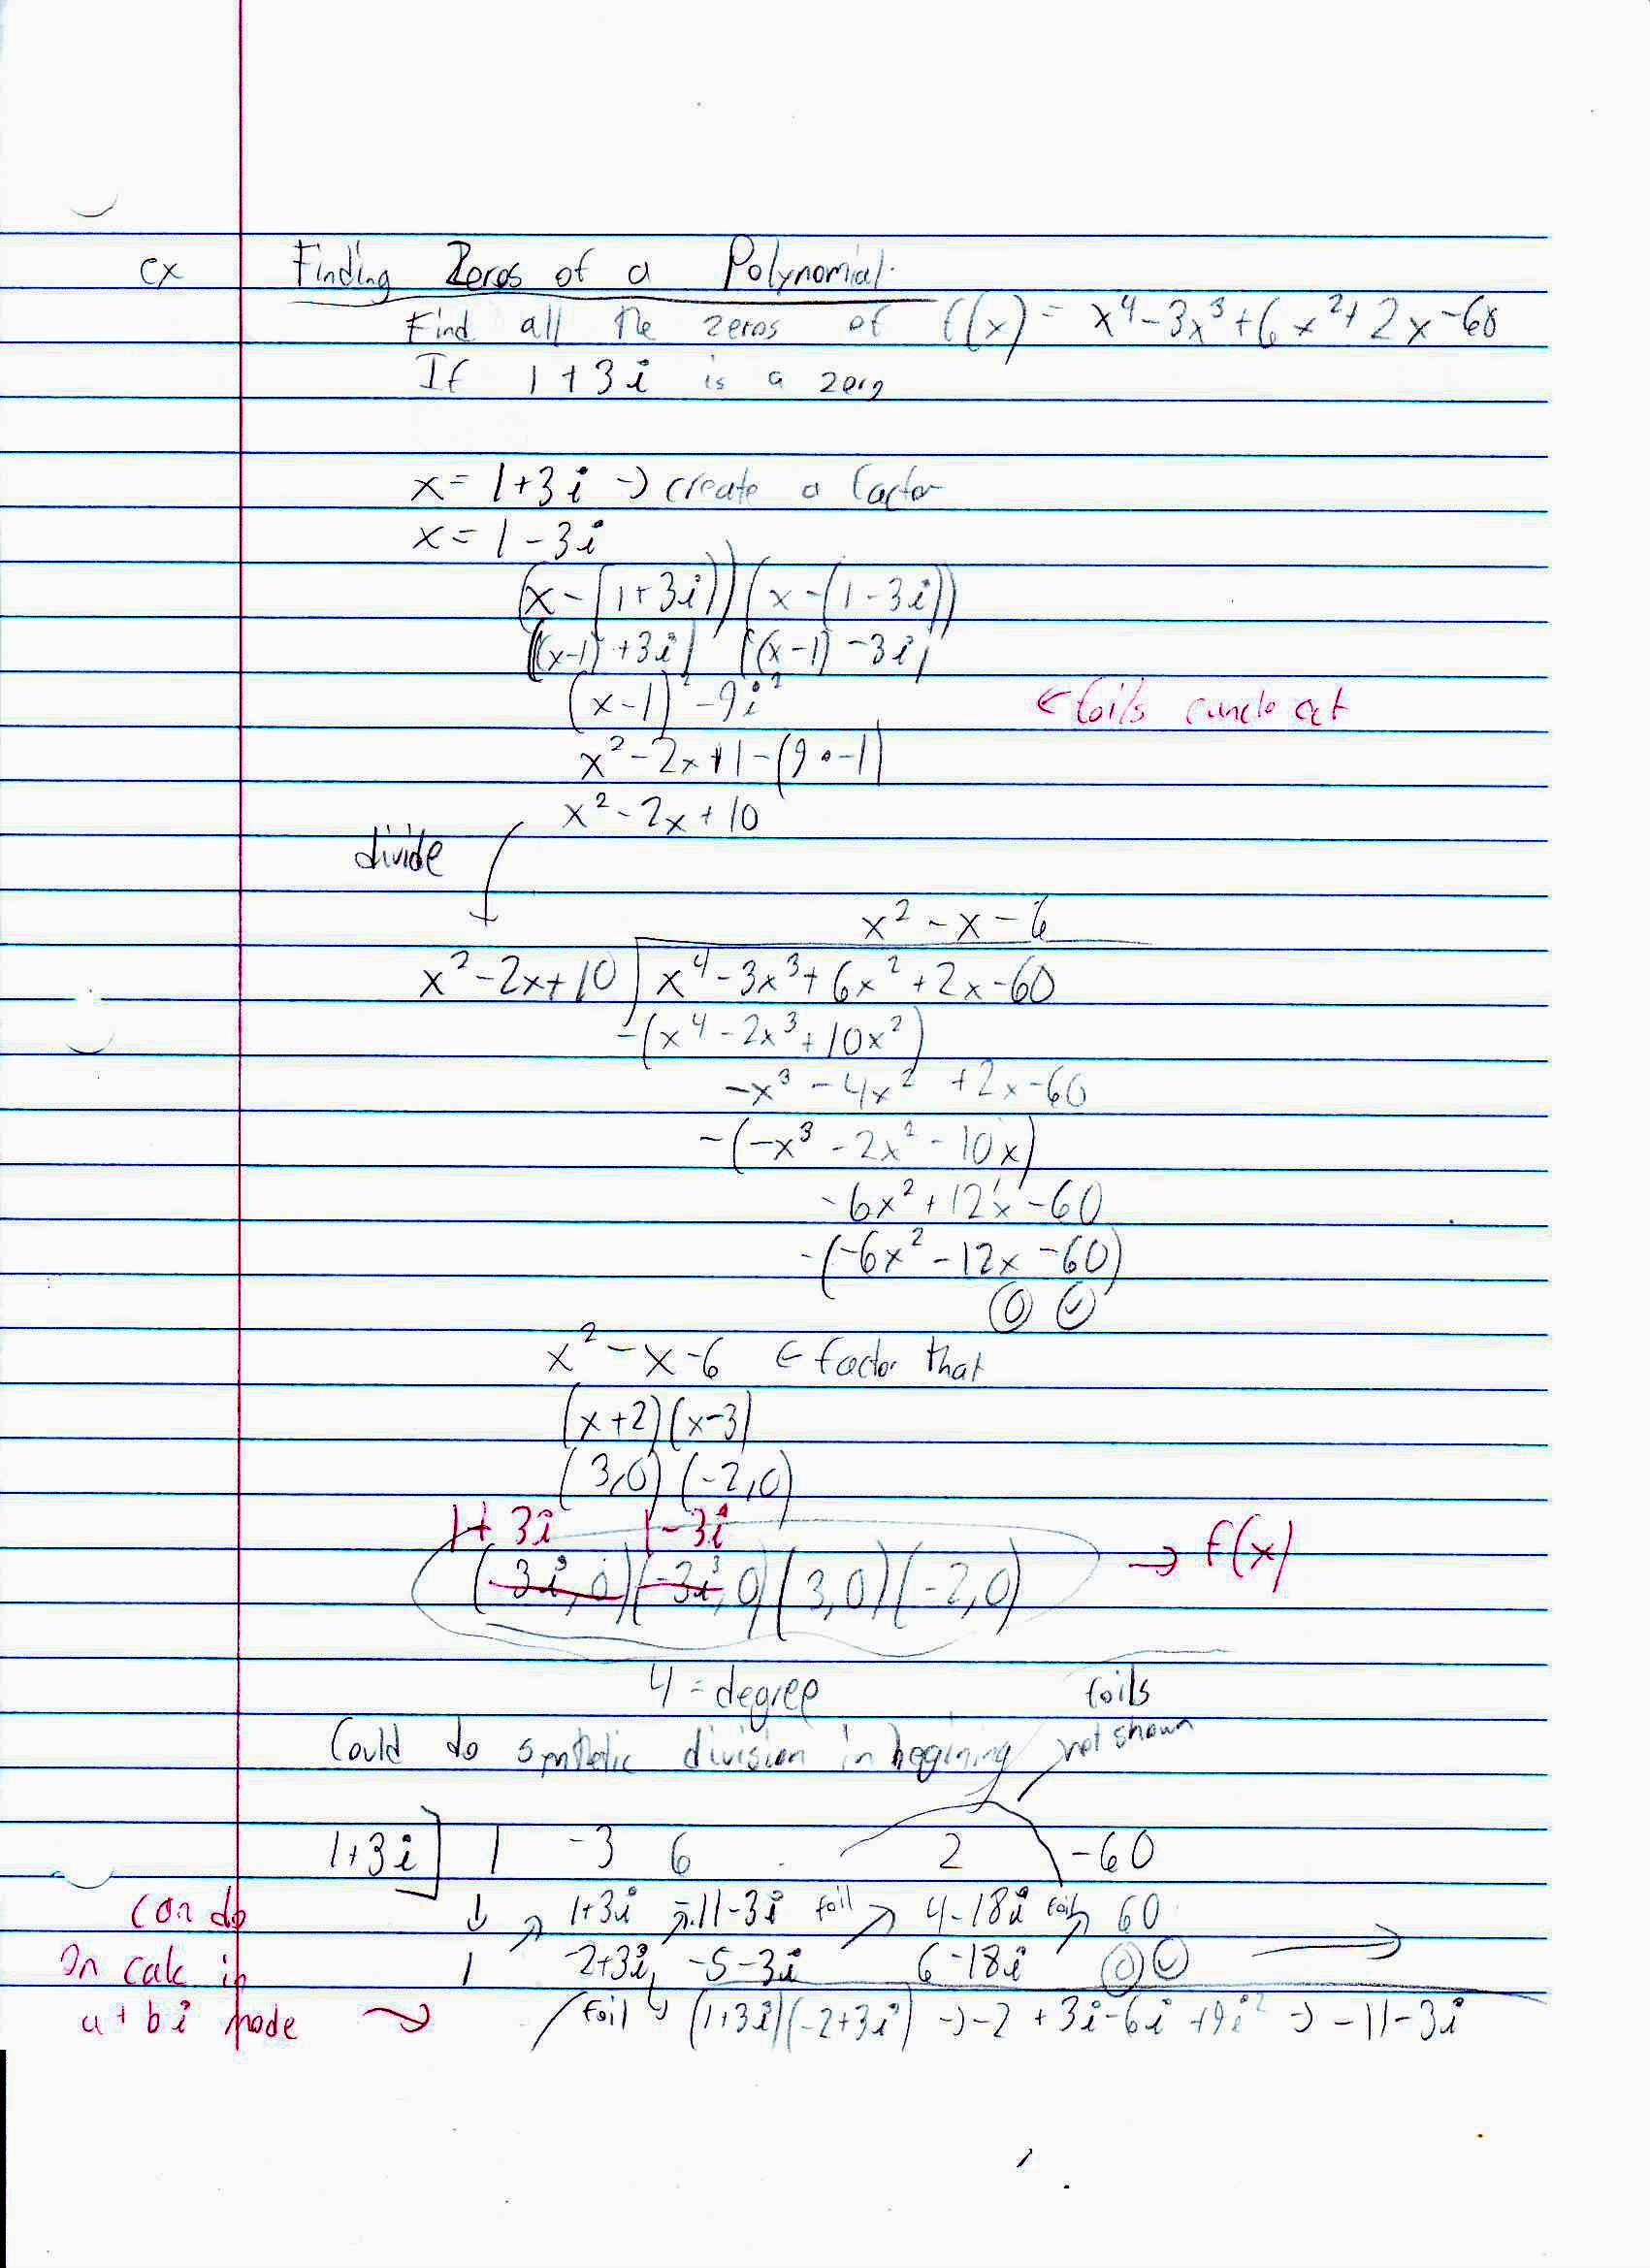 ex Finding Zeros of a Polynomial.
Find all the zeros of f(x) = x⁴-3x³+6x²+2x-60
If 1+3i is a zero
x = 1+3i → create a factor
x = 1-3i
(x-(1+3i))(x-(1-3i))
((x-1)+3i) ((x-1)-3i)
(x-1)²-9i² ← foils cancle out
x²-2x+1-(9•-1)
x²-2x+10
divide
x²-x-6
x²-2x+10 x⁴-3x³+6x²+2x-60
-(x⁴-2x³+10x²)
-x³-4x²+2x-60
-(-x³-2x²-10x)
-6x²+12x-60
-(-6x²-12x-60)
0
x²-x-6 ← factor that
(x+2)(x-3)
(3,0)(-2,0)
1+3i 1-3i
(-3i³,0)(-3i³,0)(3,0)(-2,0) → f(x)
4 = degree foils
Could do synthetic division in begining not shown
1+3i] 1 -3 6 2 -60
can do ↓ 1+3i -11-3i foil 4-18i foil 60
On calc in 1 -2+3i -5-3i 6-18i 0 →
a+bi mode → foil → (1+3i)(-2+3i) → -2+3i-6i+9i² → -11-3i